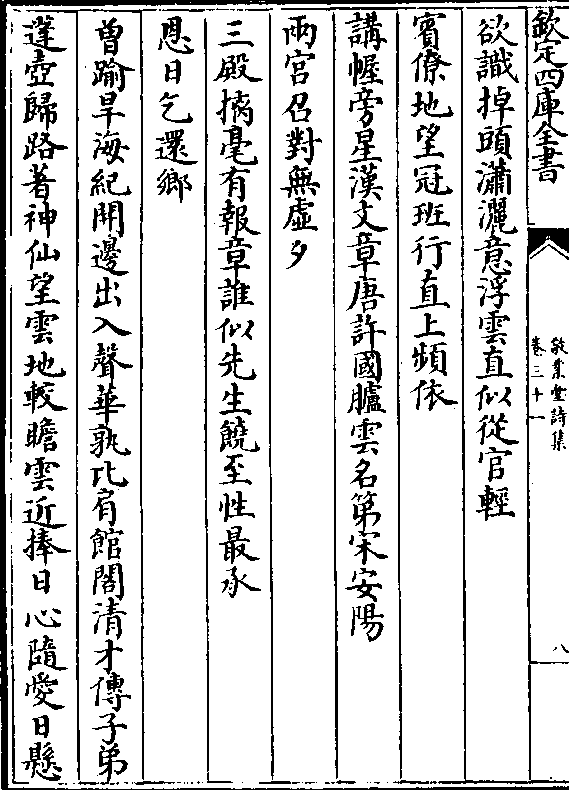 欽定四庫全書
敬業堂詩集
卷三十一
八
欲識掉頭瀟灑意浮雲直似從官輕
賓僚地望冠班行直上頻依
講幄旁星漢文章唐許國臚雲名第宋安陽
兩宫召對無虛夕
三殿摛毫有報章誰似先生饒至性最承
恩日乞還鄉
曽踰旱海紀開邊出入聲華孰比肩館閣清才傳子弟
蓬壺歸路著神仙望雲地較瞻雲近捧日心隨愛日懸